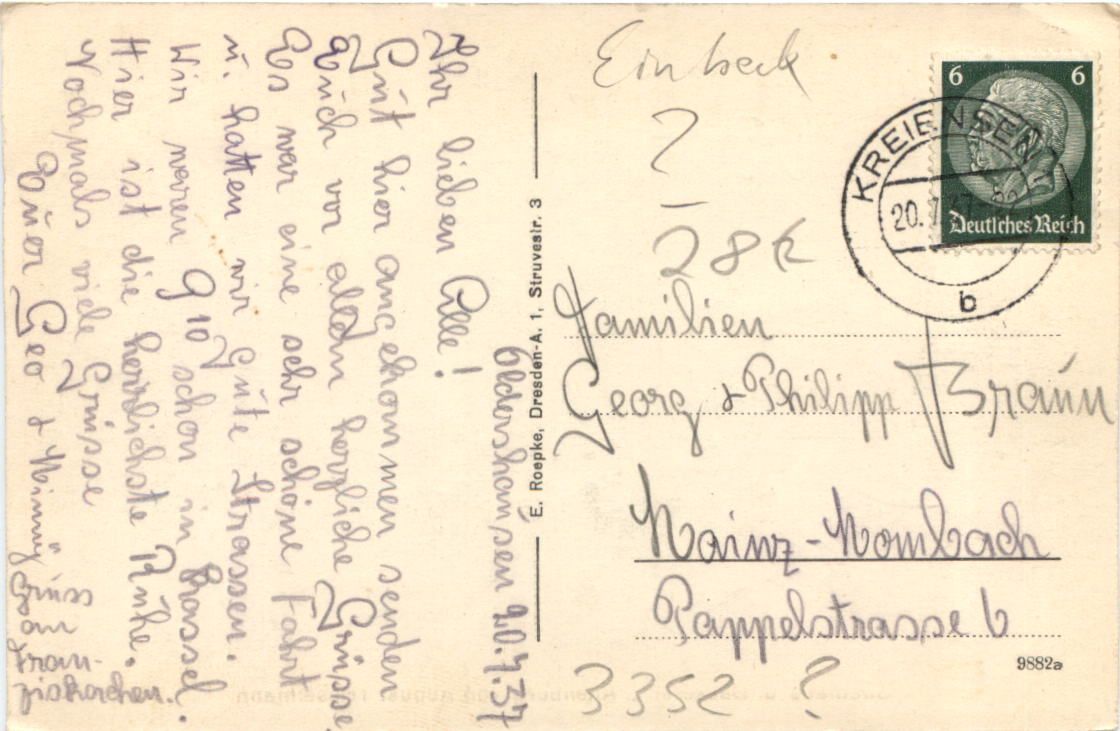 Oldershausen 20.7.37
Ihr lieben Alle!
Gut hier angekommen senden
Euch vor allem herzliche Grüsse
Es war eine sehr schöne Fahrt
u. hatten wir Gute Strassen.
Wir waren 9 10 schon in Kassel.
Hier ist die herrlichste Ruhe.
Nochmals viele Grüsse
Euer Geo & Minny
Gruss
an
Fran-
ziskachen.
E. Roepke, Dresden-A. 1, Struvestr. 3
Einbeck
?
28 k
6 6
Deutsches Reich
KREIENSEN
20.7.37
b
Familien
Georg & Philipp Braun
Mainz-Mombach
Pappelstrasse 6
9882a
3352 ?